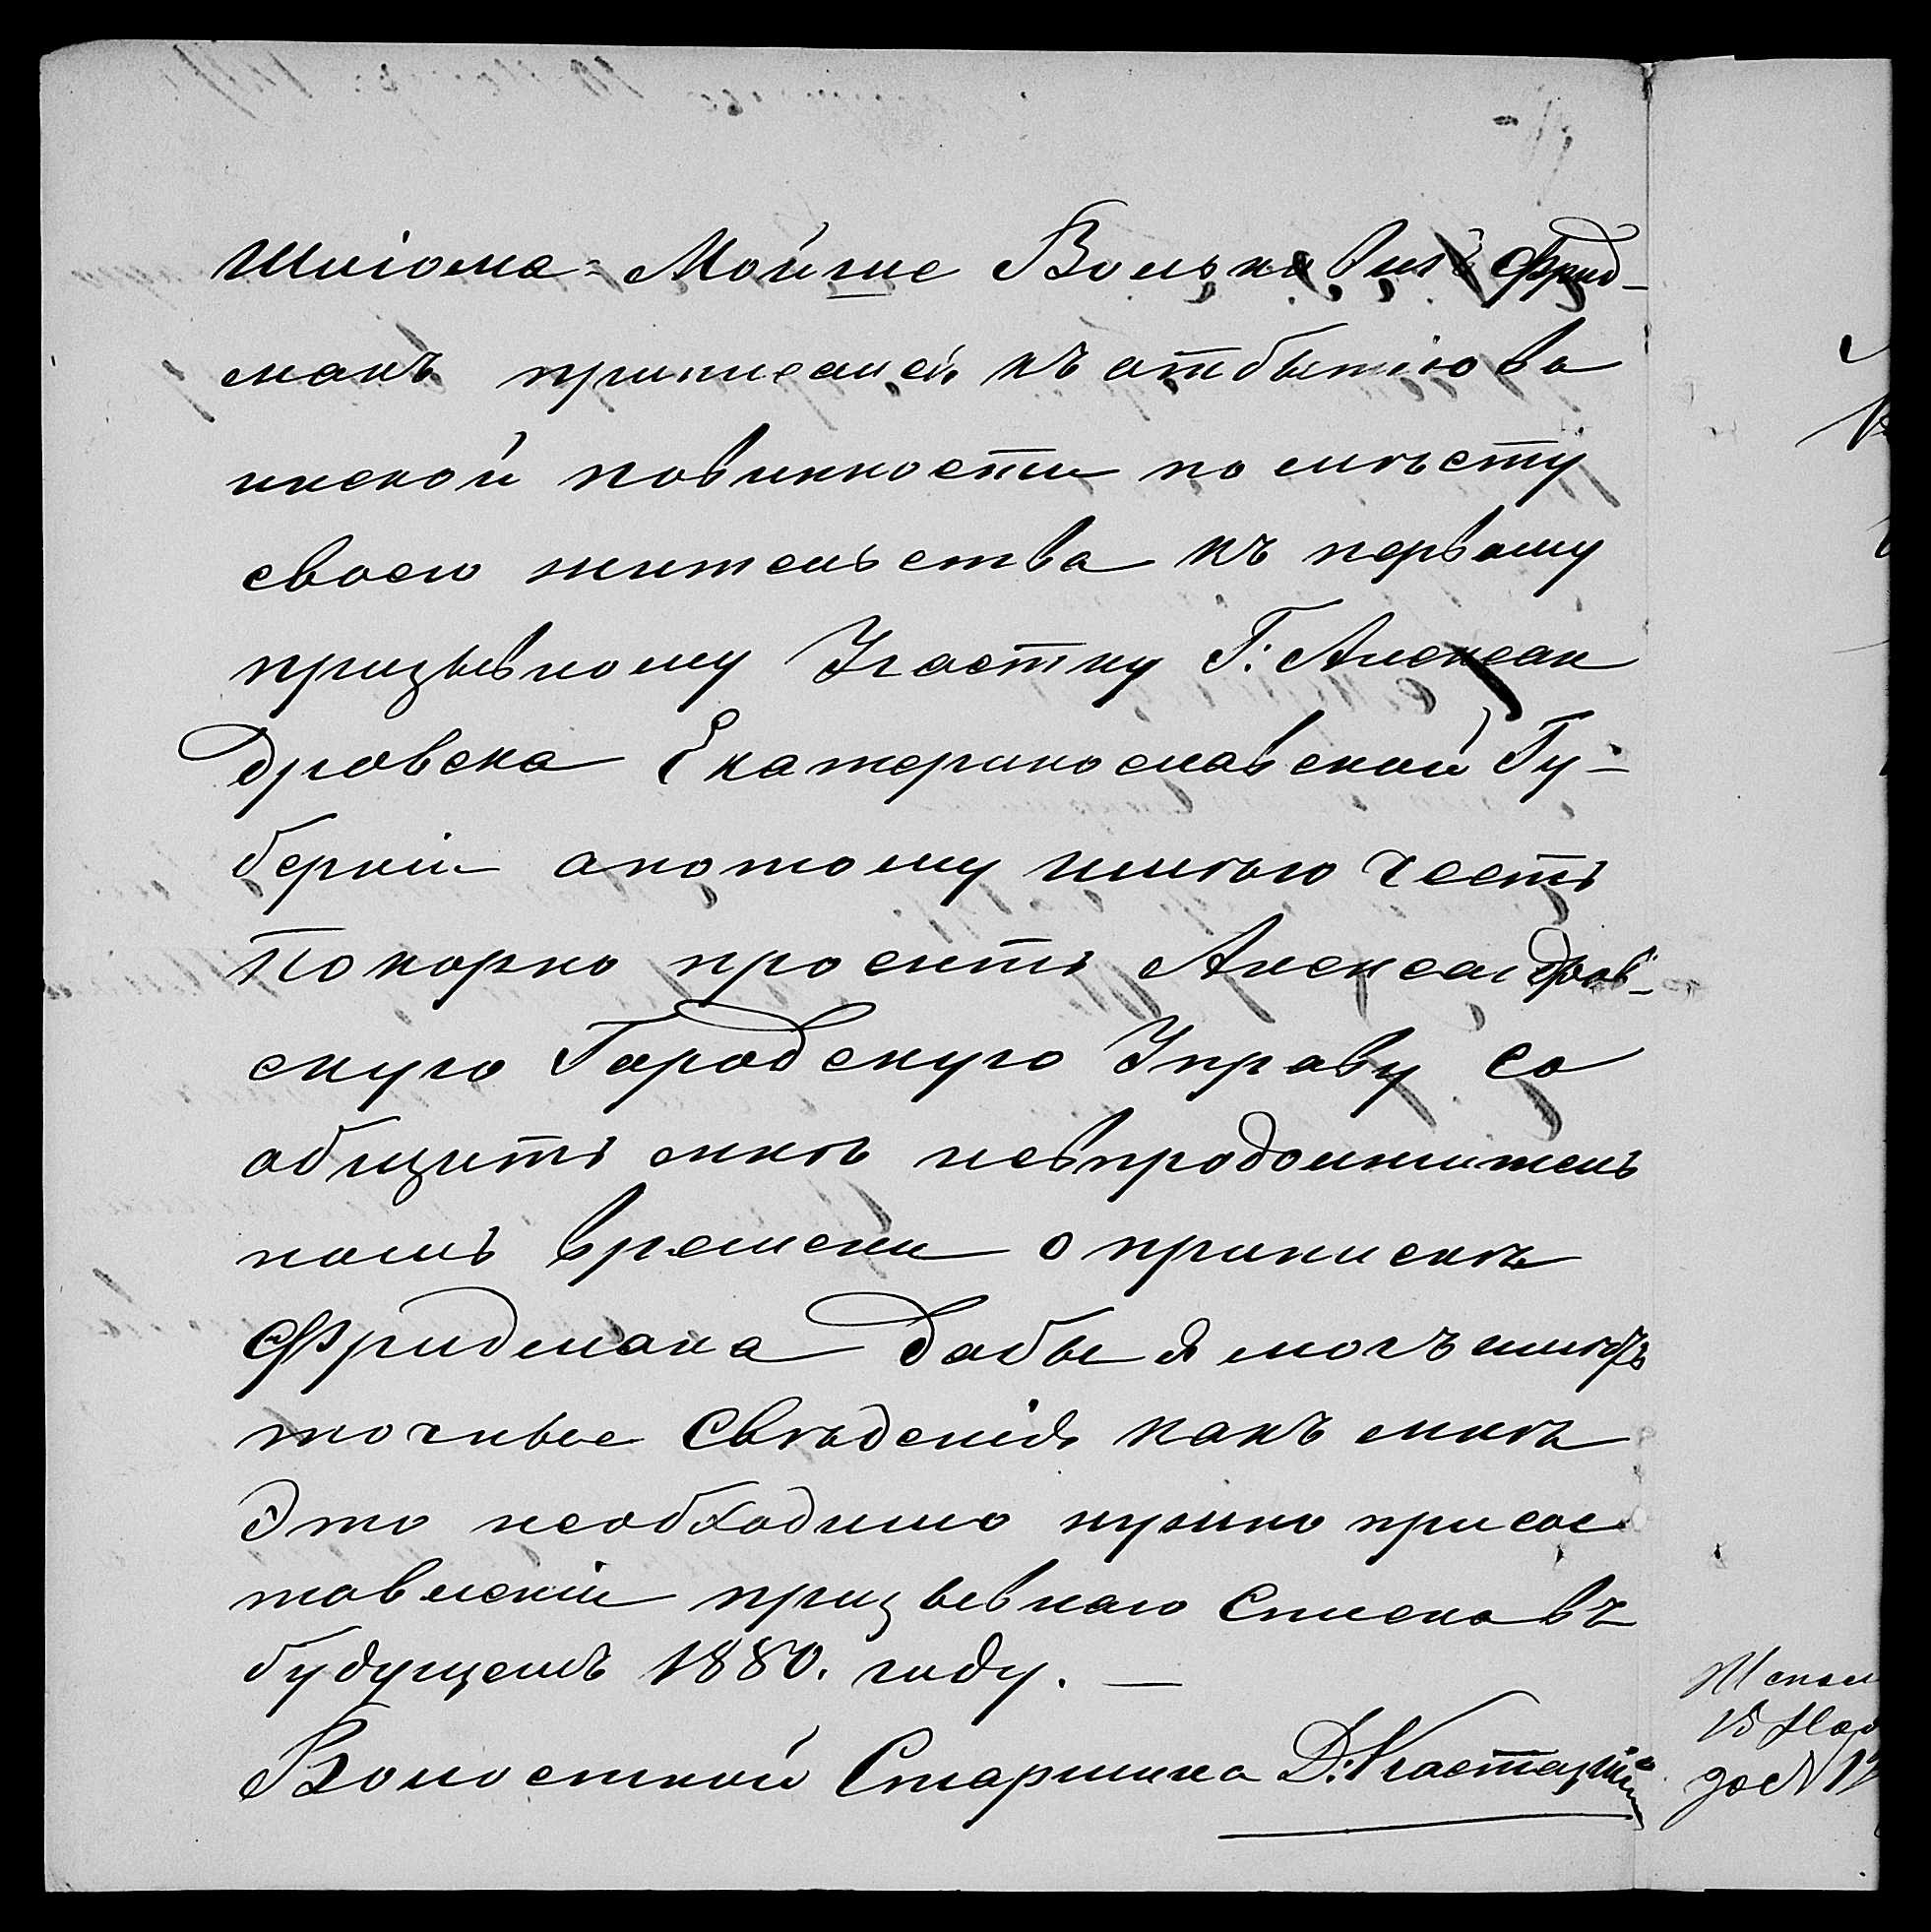 Шліома=Мойше Волько вичъ Фрид-
манъ приписался къ отбытію во
инской повинности по мѣсту
своего жительства къ первому
призывному Участку Г: Алексан
дровска Екатеринославской Гу-
берніи апотому имѣю честь
Покорно просить Александров-
скую Городскую Управу со
общить мнѣ невпродолжитель
номъ времени о припискѣ
Фридмана дабы я могъ имѣть
точные Свѣденія какъ мнѣ
Это необходимо нужно при сос
тавленіи призывнаго Списка въ
будущемъ 1880. году. —
Волостной Старшина Д: